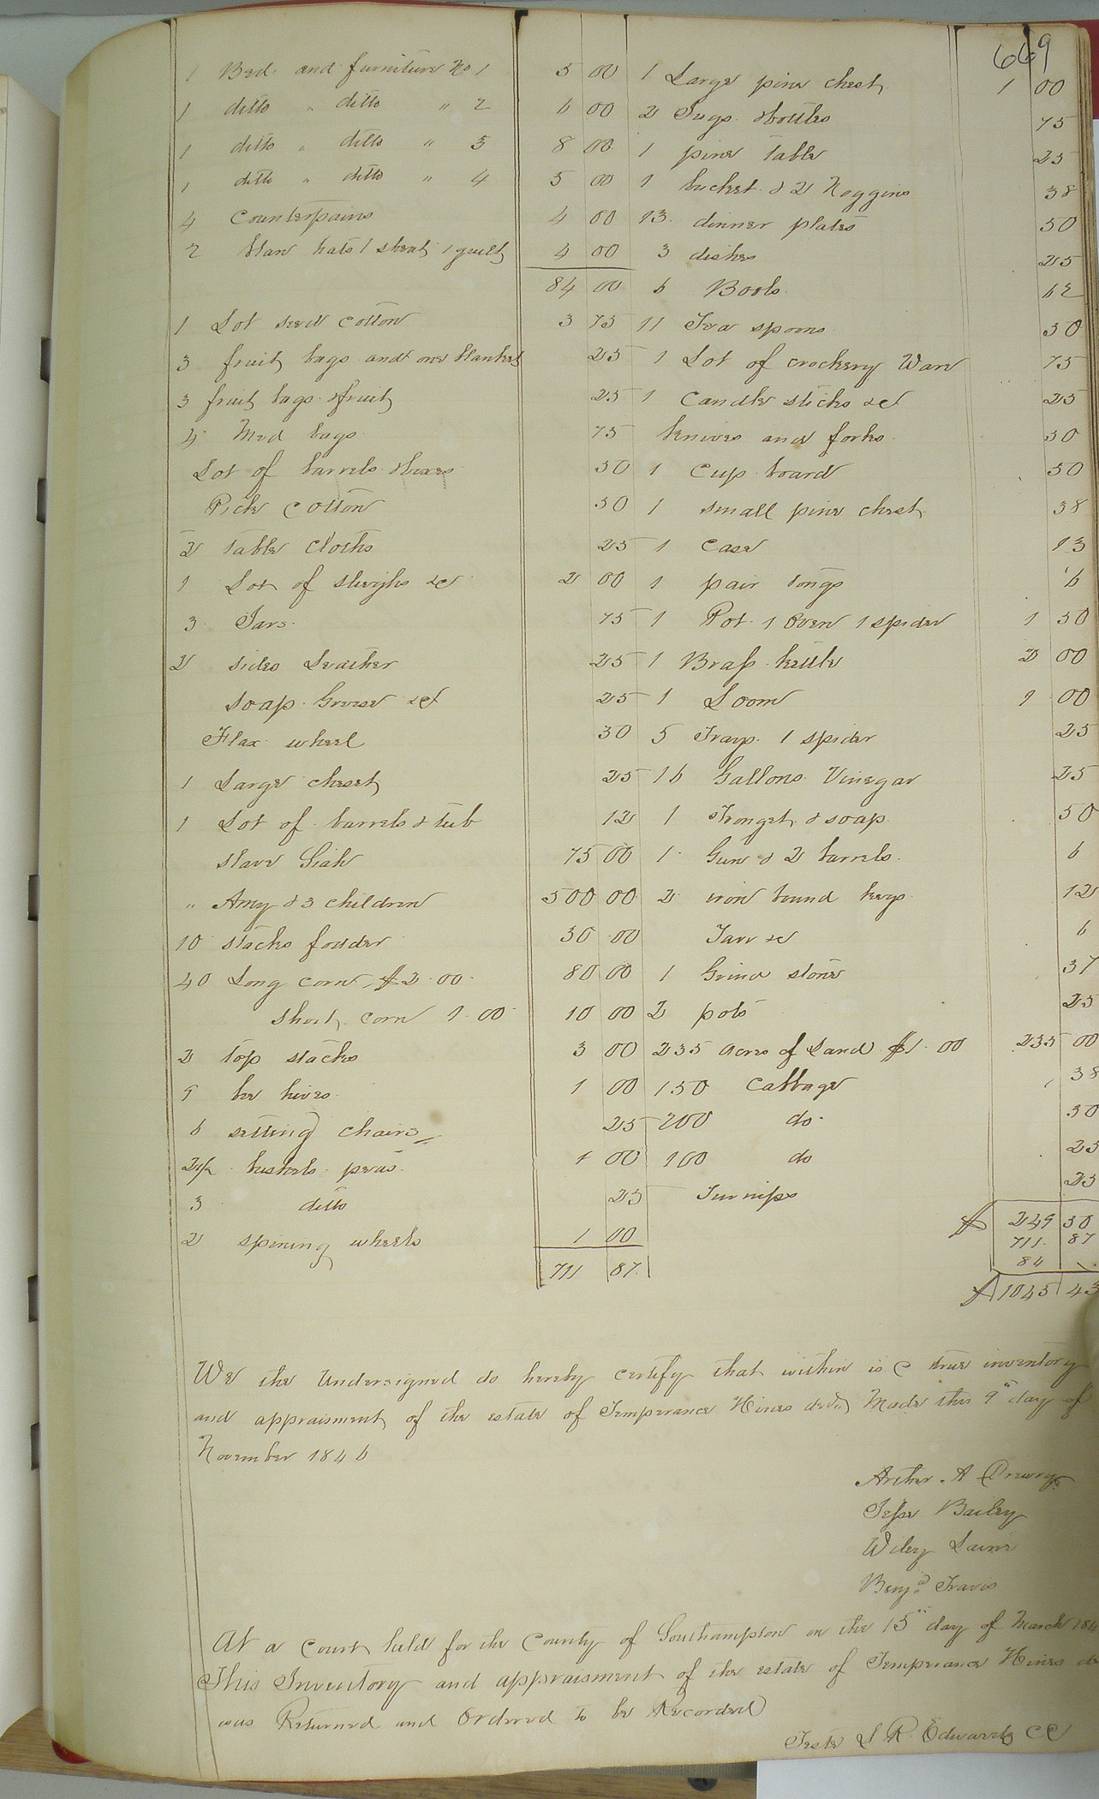 669
1 Bed and furniture No 1 5 00
1 ditto " ditto " 2 6 00
1 ditto " ditto " 3 8 00
1 ditto " ditto " 4 5 00
4 Counterpains 4 00
2 hats 1 sheat 1 quilt 4 00
84 00
1 Lot seed cotton 3 75
3 fruit bags and one blanket 25
3 fruit bags & fruit 25
4 Meal bags 75
Lot of barrels & boxes 50
Pick Cotton 50
2 table cloths 25
1 Lot of sleighs &c 2 00
3 Jars 75
2 sides Leather 25
soap Grease &c 25
Flax wheel 30
1 Large chest 25
1 Lot of barrels & tub 12
slave 75 00
" Amy & 3 children 500 00
10 stacks fodder 30 00
40 Long corn $2.00 80 00
Short corn 1.00 10 00
2 top stacks 3 00
9 bee hives 1 00
6 setting chairs 25
2½ bushels peas 1 00
3 ditto 25
2 spining wheels 1 00
711 87
1 Large pine chest 1 00
2 Jugs & bottles 75
1 pine table 25
1 bucket & 2 Noggins 38
13 dinner plates 50
3 dishes 25
6 Bools 62
11 Tea spoons 50
1 Lot of crockery Ware 75
1 Candle sticks &c 25
knives and forks 50
1 Cup board 50
1 small pine chest 38
1 Case 13
1 pair tongs 6
1 Pot 1 Oven 1 spider 1 50
1 Brass kettle 2 00
1 Loom 1 00
5 Trays 1 spider 25
16 Gallons Vinegar 25
1 & soap 50
1 Gun & 2 barrels 6
2 iron bound kegs 12
Tarr &c 6
1 Grind stone 37
2 pots 25
235 acres of Land $1.00 235 00
150 Cabbage 38
200 do 50
100 do 25
Turnips 25
$ 249 50
711 87
84
$ 1045 43
We the Undersigned do hereby certify that within is a true inventory
and appraisment of the estate of Temperance Hines decd Made this 9th day of
November 1846
Arther A Drewry
Jesse Bailey
Wiley Laine
Benjn Travis
At a Court held for the County of Southampton on the 15th day of March 184
This Inventory and appraisment of the estate of Temperance Hines de
was Returned and Ordered to be Recorded
Teste L R Edwards CC